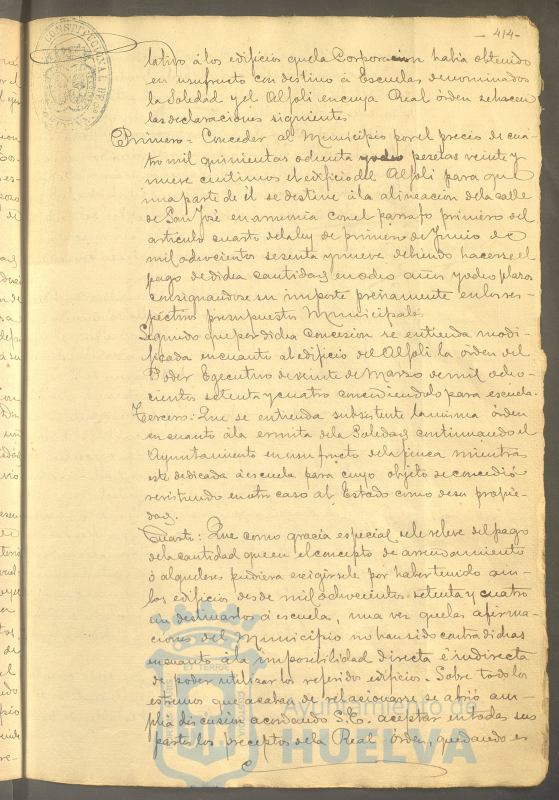 - 414 -
lativo á los edificios que la Corporacion habia obtenido
en usufructo con destino á Escuelas denominados
la Soledad y el Alfolí en cuya Real órden se hacen
las declaraciones siguientes
Primero = Conceder al Municipio por el precio de cua-
tro mil quinientas ochenta y ocho pesetas veinte y
nueve centimos el edificio del Alfolí para que
una parte de él se destine á la alineacion de la calle
de San José en armonia con el parrafo primero del
articulo cuarto de la ley de primero de Junio de
mil ochocientos sesenta y nueve debiendo hacerse el
pago de dicha cantidad en ocho años y ocho plazos
consignandose su importe préviamente en los res-
pectivos presupuestos Municipales
Segundo que por dicha concesion se entienda modi-
ficada en cuanto al edificio del Alfolí la órden del
Poder Egecutivo de veinte de Marzo de mil ocho-
cientos setenta y cuatro concediendolo para escuela.
Tercero: Que se entienda subsistente la misma órden
en cuanto á la ermita de la Soledad continuando el
Ayuntamiento en usufructo de la finca mientras
esté dedicada á escuela para cuyo objeto se concedió
revirtiendo en otro caso al Estado como de su propie-
dad.
Cuarto: Que como gracia especial se le releve del pago
de la cantidad que en el concepto de arrendamiento
ó alquileres pudiera exigirsele por haber tenido am-
bos edificios desde mil ochocientos setenta y cuatro
sin destinarlos á escuela, una vez que las afirma-
ciones del Municipio no han sido contradichas
en cuanto á la imposibilidad directa é indirecta
de poder utilizar los referidos edificios. Sobre todos los
estremos que acaban de relacionarse se abrió am-
plia discusion acordando S.E. aceptar en todas sus
partes los preceptos de la Real órden, quedando es
Ayuntamiento de
HUELVA